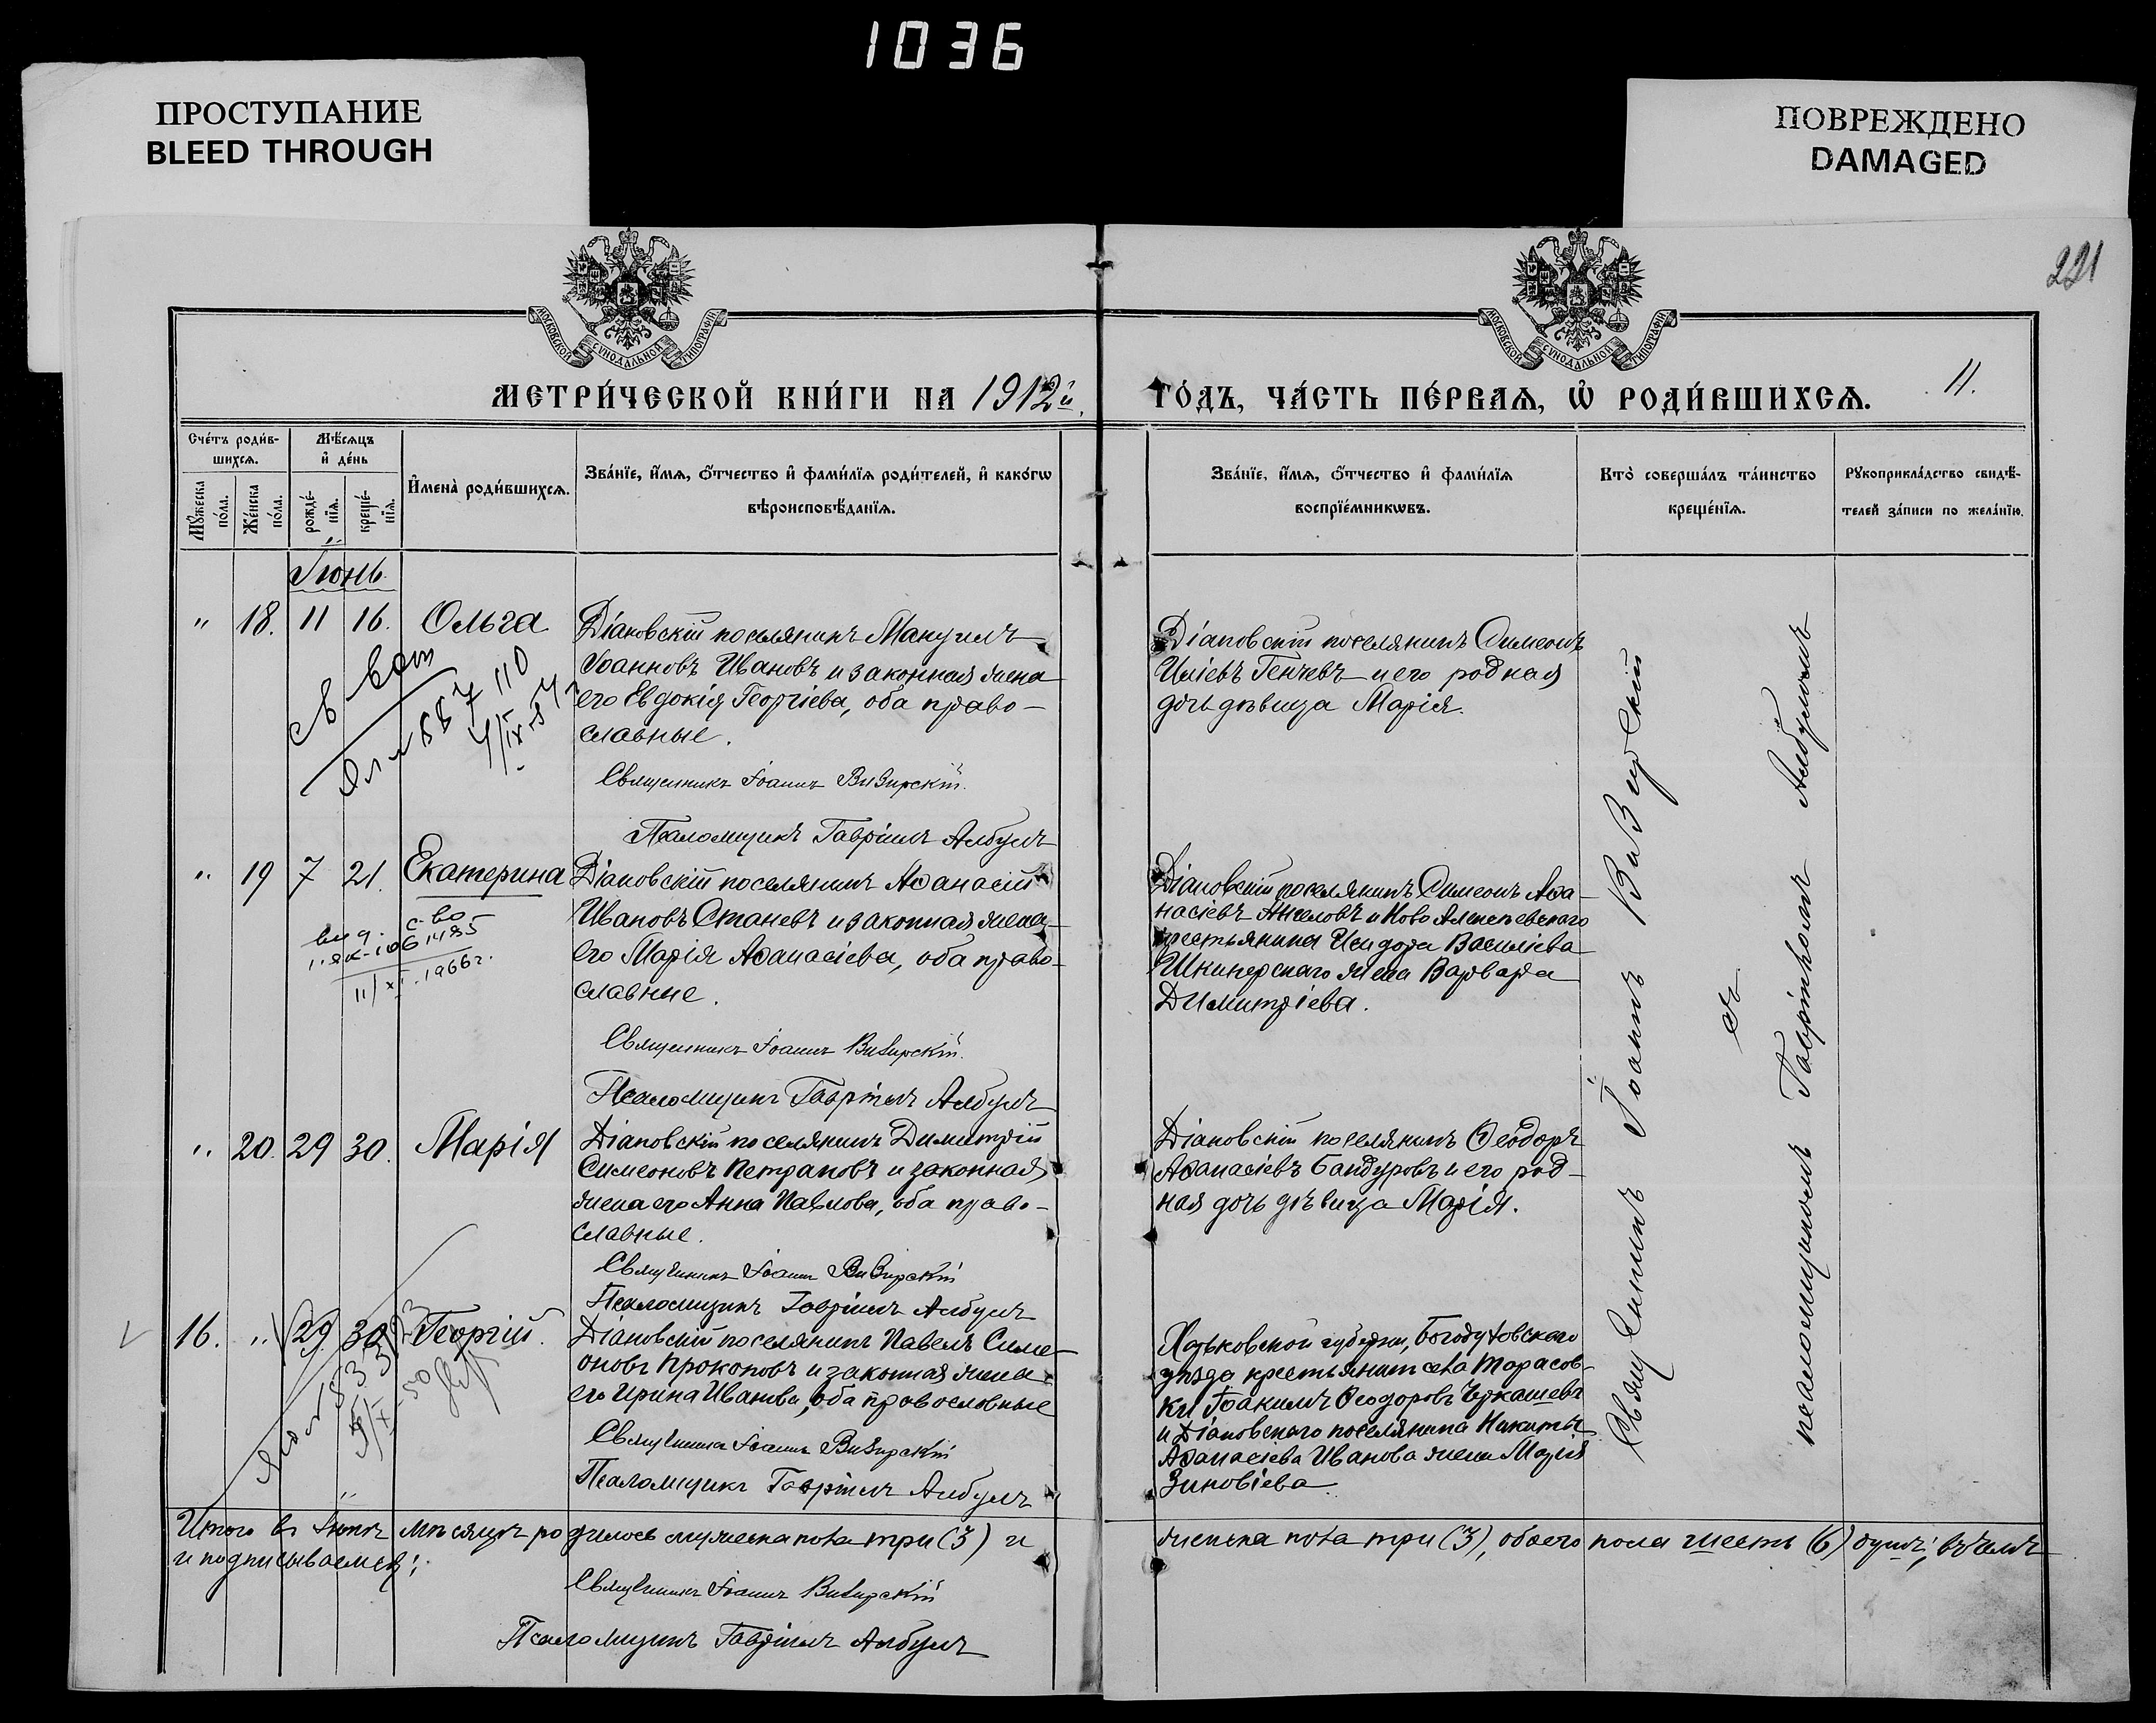 1036
ПРОСТУПАНИЕ
BLEED THROUGH
ПОВРЕЖДЕНО
DAMAGED
221
МОСКОВСКОЙ СѴНОДАЛЬНОЙ ТИПОГРАФІИ
МОСКОВСКОЙ СѴНОДАЛЬНОЙ ТИПОГРАФІИ
МЕТРИ́ЧЕСКОЙ КНИ́ГИ НА 1912й
ГО́ДЪ, ЧА́СТЬ ПЕ́РВАѦ, Ѡ҆ РОДИ́ВШИХСѦ. 11.
Сче́тъ роди́в-
шихсѧ.
Мꙋ́жеска по́ла.
Же́нска по́ла.
Мѣ́сѧцъ
и҆ де́нь
рожде́-
нїѧ.
креще́-
нїѧ.
И҆мена̀ роди́вшихсѧ.
Зва́нїе, и҆́мѧ, ѻ҆́тчество и҆ фами́лїѧ роди́телей, и҆ како́гѡ
вѣроисповѣ́данїѧ.
Зва́нїе, и҆́мѧ, ѻ҆́тчество и҆ фами́лїѧ
воспрїе́мникѡвъ.
Кто̀ соверша́лъ та́инство
креще́нїѧ.
Рꙋкоприкла́дство свидѣ́-
телей за́писи по жела́нїю.
Іюнь.
" 18. 11 16. Ольга
Діановскій поселянинъ Мануилъ
Іоанновъ Ивановъ и законная жена
его Евдокія Георгіева, оба право-
славные.
Священникъ Іоаннъ Визирскій.
Псаломщикъ Гавріилъ Албулъ
Діановскій поселянинъ Симеонъ
Иліевъ Генчевъ и его родная
дочь дѣвица Марія.
" 19 7 21. Екатерина
выд. с-во
11/XI-1966г.
Діановскій поселянинъ Аѳанасій
Ивановъ Станевъ и законная жена
его Марія Аѳанасіева, оба право-
славные.
Священникъ Іоаннъ Визирскій.
Псаломщикъ Гавріилъ Албулъ
Діановскій поселянинъ Симеонъ Аѳа-
насіевъ Ангеловъ и Ново Алексѣевскаго
крестьянина Исидора Василіева
Шкиперскаго жена Варвара
Димитріева.
" 20. 29 30. Марія
Діановскій поселянинъ Димитрій
Симеоновъ Петрановъ и законная
жена его Анна Павлова, оба право-
славные.
Священникъ Іоаннъ Визирскій
Псаломщикъ Гавріилъ Албулъ
Діановскій поселянинъ Ѳеодоръ
Аѳанасіевъ Бандуровъ и его род-
ная дочь дѣвица Марія.
16. " 29. 30. Георгій.
Діановскій поселянинъ Павелъ Симе-
оновъ Прокоповъ и законная жена
его Ирина Иванова, оба православные
Священникъ Іоаннъ Визирскій
Псаломщикъ Гавріилъ Албулъ
Харьковской губерніи, Богодуховскаго
уѣзда крестьянинъ села Тарасов-
ки Іоакимъ Ѳеодоровъ Черкашевъ
и Діановскаго поселянина Никиты
Аѳанасіева Иванова жена Марія
Зиновіева.
Священникъ Іоаннъ Визирскій
съ
псаломщикомъ Гавріиломъ Албуломъ
Итого въ Іюнѣ мѣсяцѣ родилось мужеска пола три (3) и женска пола три (3), обоего пола шесть (6) душъ; въ чемъ
и подписываемся:
Священникъ Іоаннъ Визирскій
Псаломщикъ Гавріилъ Албулъ